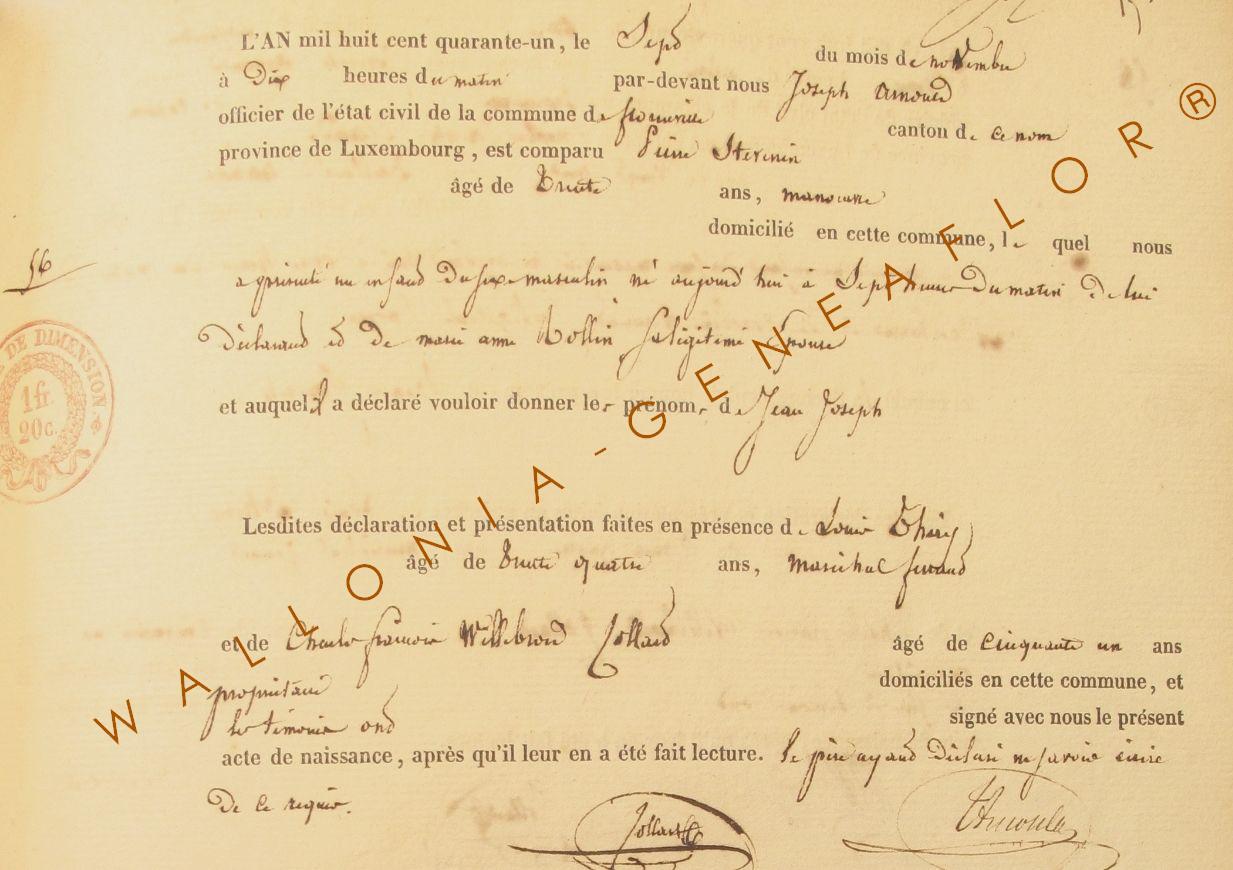 L'AN mil huit cent quarante-un, le Sept du mois de novembre
à Dix heures du matin par-devant nous Joseph Arnould
officier de l'état civil de la commune de canton de ce nom
province de Luxembourg, est comparu Pierre Stevenin
âgé de Trente ans, manouvre
domicilié en cette commune, le quel nous
56
a présenté un enfant du sexe masculin né aujourd'hui à Sept heures Du matin De lui
Déclarant et De marie anne Rollin sa légitime Epouse
et auquel il a déclaré vouloir donner les prénoms de Jean Joseph
DE DIMENSION
1 fr.
20 c.
Lesdites déclaration et présentation faites en présence de Louis Thiry
âgé de Trente quatre ans, maréchal ferrant
et de Charles françois Willebrord Collard âgé de Cinquante un ans
propriétaire domiciliés en cette commune, et
les témoins ont signé avec nous le présent
acte de naissance, après qu'il leur en a été fait lecture. le père ayant Déclaré ne savoir écrire
De ce requis.
Collard
WALLONIA-GENEAFLOR®